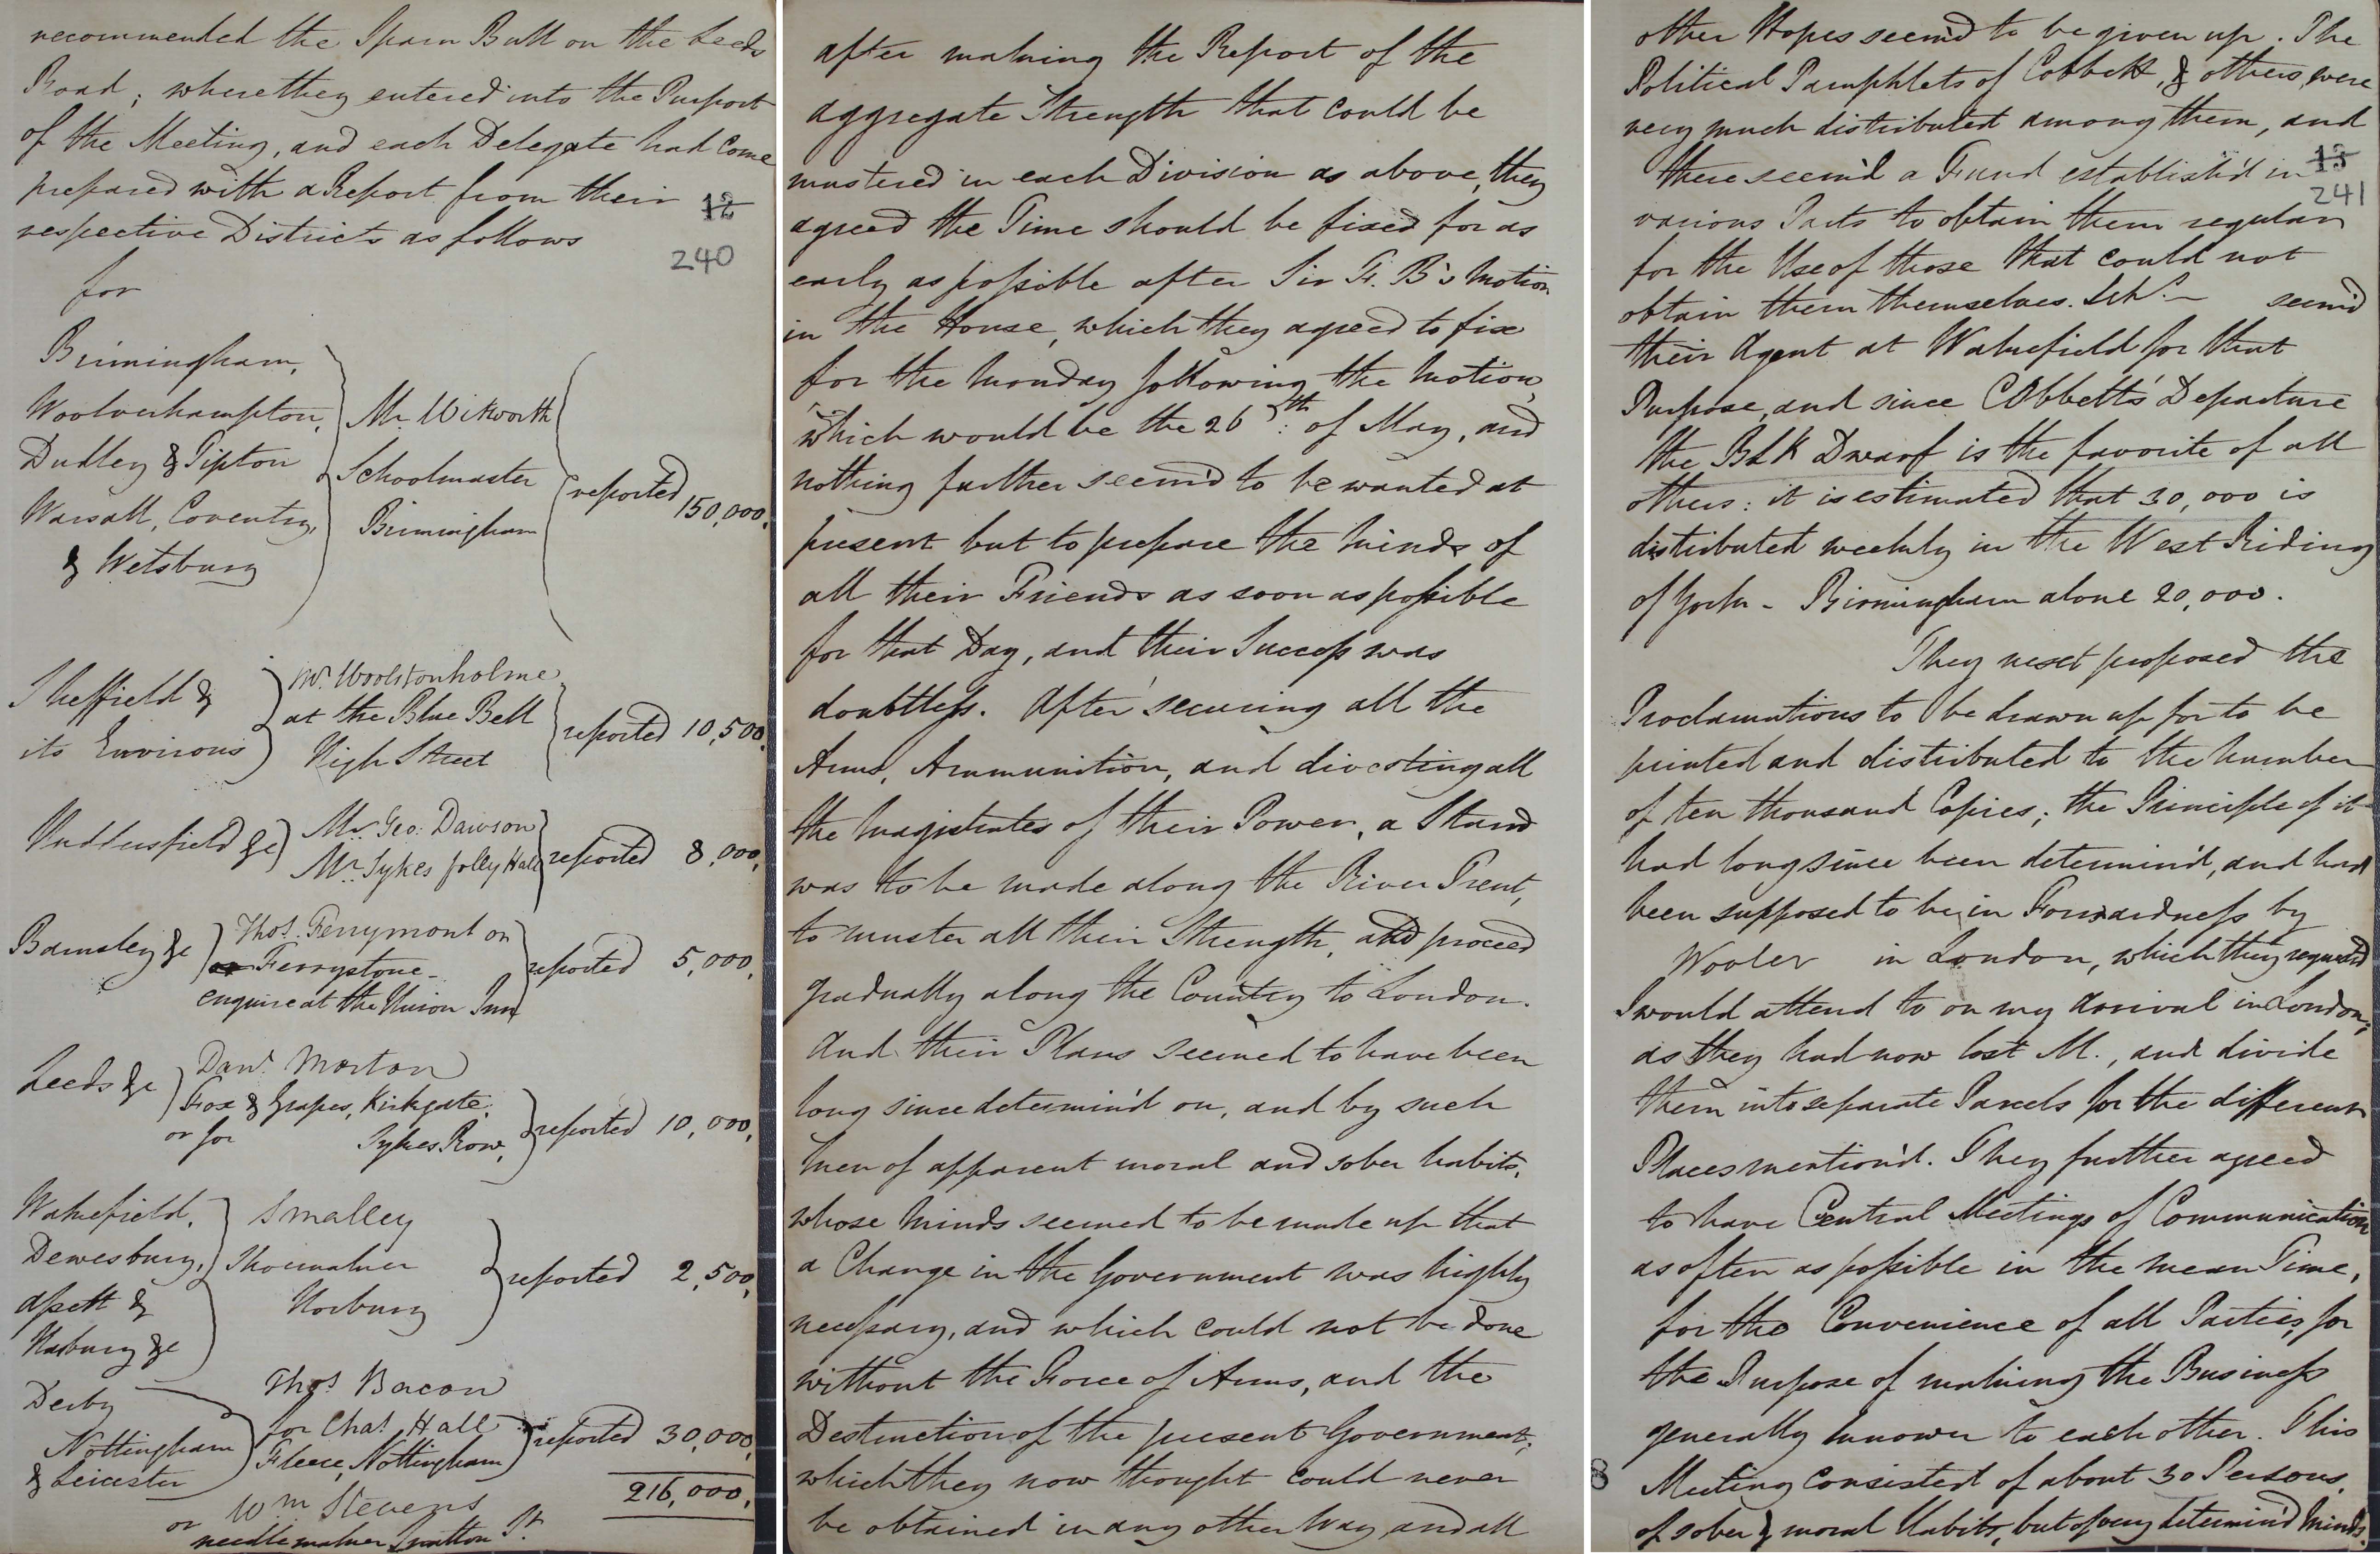 recommended the Spawn Bull on the Leeds
Road; where they entered into the Purport
of the Meeting, and each Delegate had come
prepared with a Report from their
12
respective Districts as follows
240
for
Birmingham,
Woolverhampton,
Dudley & Tipton
Warsall, Coventry,
& Wetsburg
Mr. Witworth
Schoolmaster
Birmingham
reported 150,000.
Sheffield &
its Environs
Mr. Woolstonholme
at the Blue Bell
High Street
reported 10,500.
Huddersfield &c
Mr. Geo: Dawson
Mr. Sykes Jolly Hall
reported 8,000,
Barnsley &c
Thos. Ferrymont or
or Ferrystone
enquire at the Union Inn
reported 5,000,
Leeds &c
Danl. Morton
Fox & Grapes, Kirkgate,
or for Sykes Row,
reported 10,000,
Wakefield,
Dewesbury,
Assett &
Horbury &c
Smalley
Shoemaker
Horbury
reported 2,500,
Derby
Nottingham
& Leicester
Thos. Bacon
for Chas. Hall
Fleece, Nottingham
reported 30,000,
or Wm Stevens
216,000,
needlemaker St.
after making the Report of the
aggregate Strength that could be
mustered in each Division as above, they
agreed the Time should be fixed for as
early as possible after Sir F. B's Motion
in the House, which they agreed to fix
for the Monday following the Motion,
which would be the 26th: of May, and
nothing further seem'd to be wanted at
present but to prepare the Minds of
all their Friends as soon as possible
for that Day, and their Success was
doubtless. After securing all the
Arms, Ammunition, and divesting all
the Magistrates of their Power, a Stand
was to be made along the River Trent,
to muster all their Strength, and proceed
gradually along the Country to London.
And their Plans seemed to have been
long since determin'd on, and by such
Men of apparent moral and sober habits,
whose Minds seemed to be made up that
a Change in the Government was highly
necessary, and which could not be done
without the Force of Arms, and the
Destruction of the present Government;
which they now thought could never
be obtained in any other Way, and all
other Hopes seem'd to be given up. The
Political Pamphlets of Cobbett, & others, were
very much distributed among them, and
there seem'd a Fund establish'd in
13
241
various Parts to obtain them regular
for the Use of those that could not
obtain them themselves. seem'd
their Agent at Wakefield for that
Purpose, and since Cobbett's Departure
the Blk Dwarf is the favorite of all
others: it is estimated that 30,000 is
distributed weekly in the West Riding
of York - Birmingham alone 20,000.
They next proposed the
Proclamations to be drawn up for to be
printed and distributed to the Number
of ten thousand Copies; the Principle of it
had long since been determin'd, and had
been supposed to be in Forwardness by
Wooler in London, which they required
I would attend to on my Arrival in London,
as they had now lost M., and divide
them into separate Parcels for the different
Places mention'd. They further agreed
to have Central Meetings of Communication
as often as possible in the mean Time,
for the Convenience of all Parties, for
the Purpose of making the Business
generally known to each other. This
Meeting consisted of about 30 Persons,
of sober & moral Habits, but of very determin'd Minds.